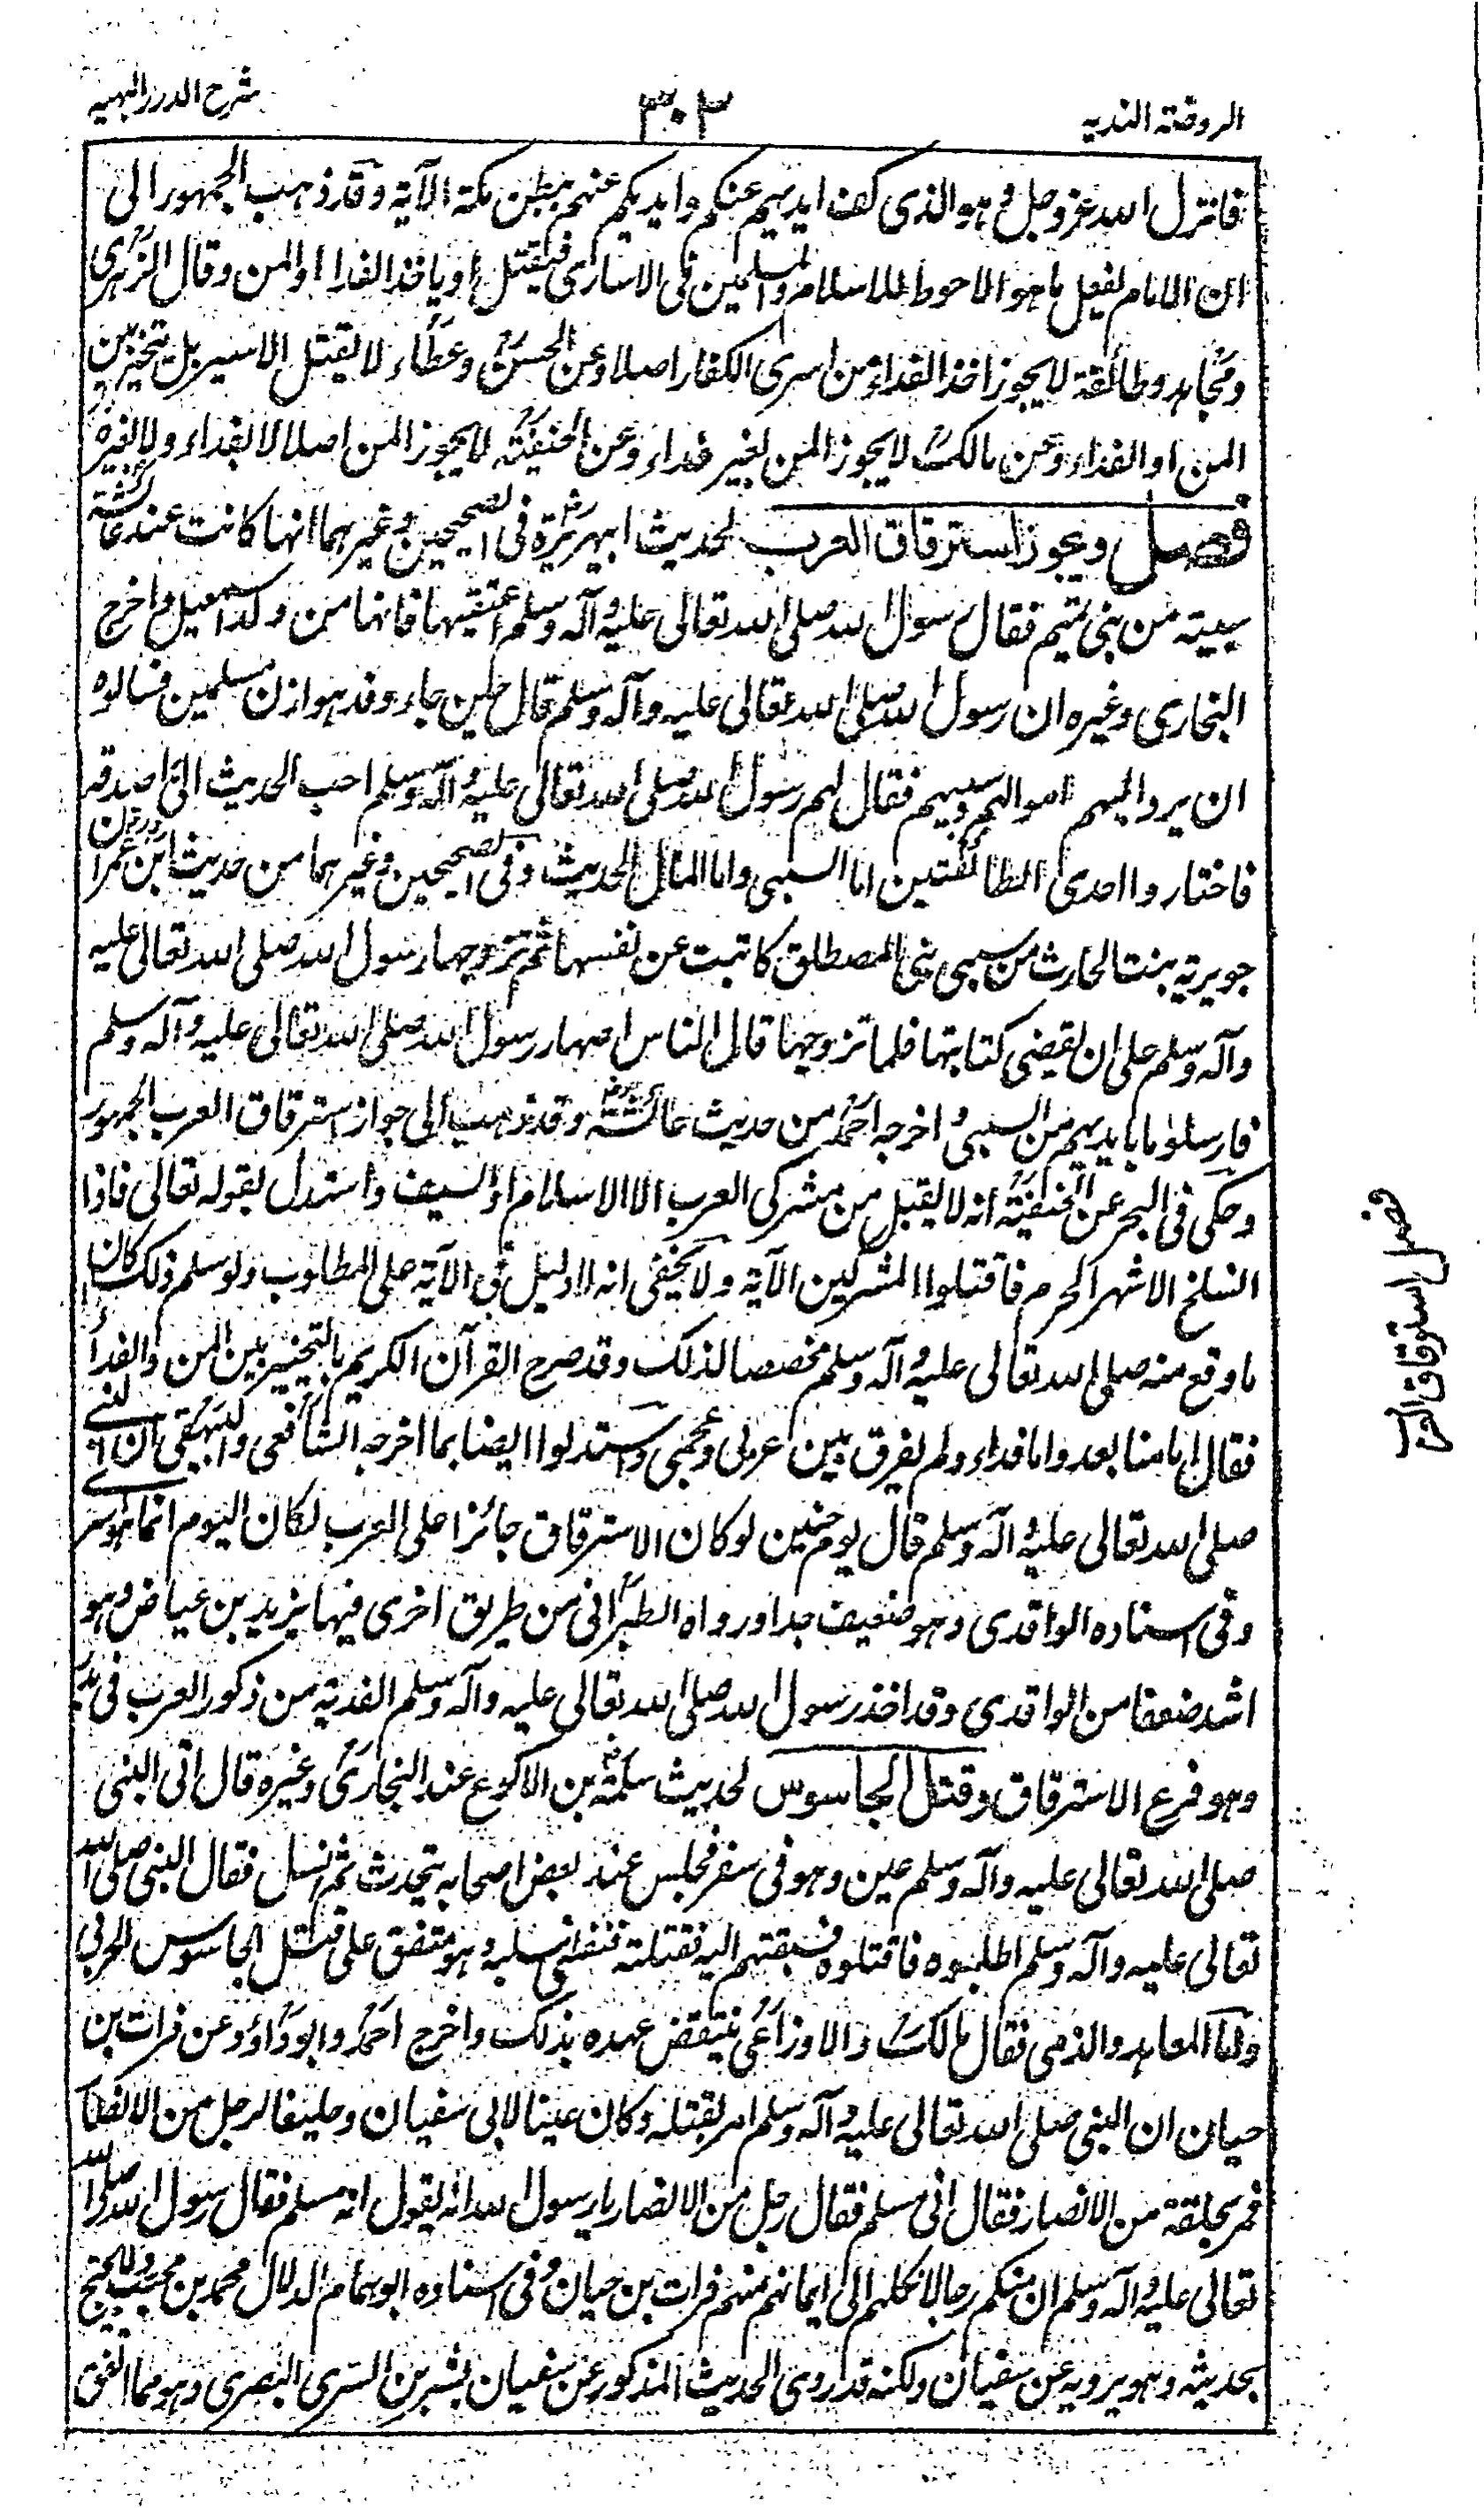 الروضة الندية
٣٠٢
شرح الدرر البهية
فانزل الله عز وجل وهو الذى كف ايديهم عنكم وايديكم عنهم ببطن مكة الآية وقد ذهب الجمهور الى
ان الامام يفعل ما هو الاحوط للاسلام والمسلمين فى الاسارى فيقتل او ياخذ الفداء او المن وقال الزهرى
ومجاهد وطائفة لا يجوز اخذ الفداء من اسرى الكفار اصلا وعن الحسن وعطاء لا يقتل الاسير بل يتخير بين
المن او الفداء وعن مالك لا يجوز المن بغير فداء وعن الحنفية لا يجوز المن اصلا لا بفداء ولا بغيره
فصل ويجوز استرقاق العرب لحديث ابى هريرة فى الصحيحين وغيرهما انها كانت عند عائشة
سبية من بنى تميم فقال رسول الله صلى الله تعالى عليه وآله وسلم اعتقيها فانها من ولد اسمعيل واخرج
البخارى وغيره ان رسول الله صلى الله تعالى عليه وآله وسلم قال حين جاء وفد هوازن مسلمين فسالوه
ان يرد اليهم اموالهم وسبيهم فقال لهم رسول الله صلى الله تعالى عليه وآله وسلم احب الحديث الى اصدقه
فاختاروا احدى الطائفتين اما السبى واما المال الحديث وفى الصحيحين وغيرهما من حديث ابن عمر ان
جويرية بنت الحارث من سبى بنى المصطلق كاتبت عن نفسها ثم تزوجها رسول الله صلى الله تعالى عليه
وآله وسلم على ان يقضى كتابتها فلما تزوجها قال الناس اصهار رسول الله صلى الله تعالى عليه وآله وسلم
فارسلوا ما بايديهم من السبى اخرجه احمد من حديث عائشة وقد ذهب الى جواز استرقاق العرب الجمهور
وحكى فى البحر عن الحنفية انه لا يقبل من مشركى العرب الا الاسلام او السيف واستدل بقوله تعالى فاذا
انسلخ الاشهر الحرم فاقتلوا المشركين الآية ولا يخفى انه لا دليل فى الآية على المطلوب ولو سلم ذلك كان
ما وقع منه صلى الله تعالى عليه وآله وسلم مخصصا لذلك وقد صرح القرآن الكريم بالتخيير بين المن والفداء
فقال اما منا بعد واما فداء ولم يفرق بين عربى وعجمى واستدلوا ايضا بما اخرجه الشافعى والبيهقى ان النبى
صلى الله تعالى عليه وآله وسلم قال يوم حنين لو كان الاسترقاق جائزا على العرب لكان اليوم انما هو اسرى
وفى اسناده الواقدى وهو ضعيف جدا ورواه الطبرانى من طريق اخرى فيها يزيد بن عياض وهو
اشد ضعفا من الواقدى وقد اخذ رسول الله صلى الله تعالى عليه وآله وسلم الفدية من ذكور العرب فى بدر
وهو فرع الاسترقاق وقتل الجاسوس لحديث سلمة بن الاكوع عند البخارى وغيره قال اتى النبى
صلى الله تعالى عليه وآله وسلم عين وهو فى سفر فجلس عند بعض اصحابه يتحدث ثم انسل فقال النبى صلى الله
تعالى عليه وآله وسلم اطلبوه فاقتلوه فسبقتهم اليه فقتلته فنفلنى سلبه وهو متفق على قتل الجاسوس الحربى
واما المعاهد والذمى فقال مالك والاوزاعى ينتقض عهده بذلك واخرج احمد وابو داؤد عن فرات بن
حيان ان النبى صلى الله تعالى عليه وآله وسلم امر بقتله وكان عينا لابى سفيان وحليفا لرجل من الانصار
فمر بحلقة من الانصار فقال انى مسلم فقال رجل من الانصار يا رسول الله انه يقول انه مسلم فقال رسول الله صلى الله
تعالى عليه وآله وسلم ان منكم رجالا نكلهم الى ايمانهم منهم فرات بن حيان وفى اسناده ابو همام الدلال محمد بن محبب ولا يحتج
بحديثه وهو يرويه عن سفيان ولكنه قد روى الحديث المذكور عن سفيان بشر بن السرى البصرى وهو مما اتفق
فصل استرقاق العرب